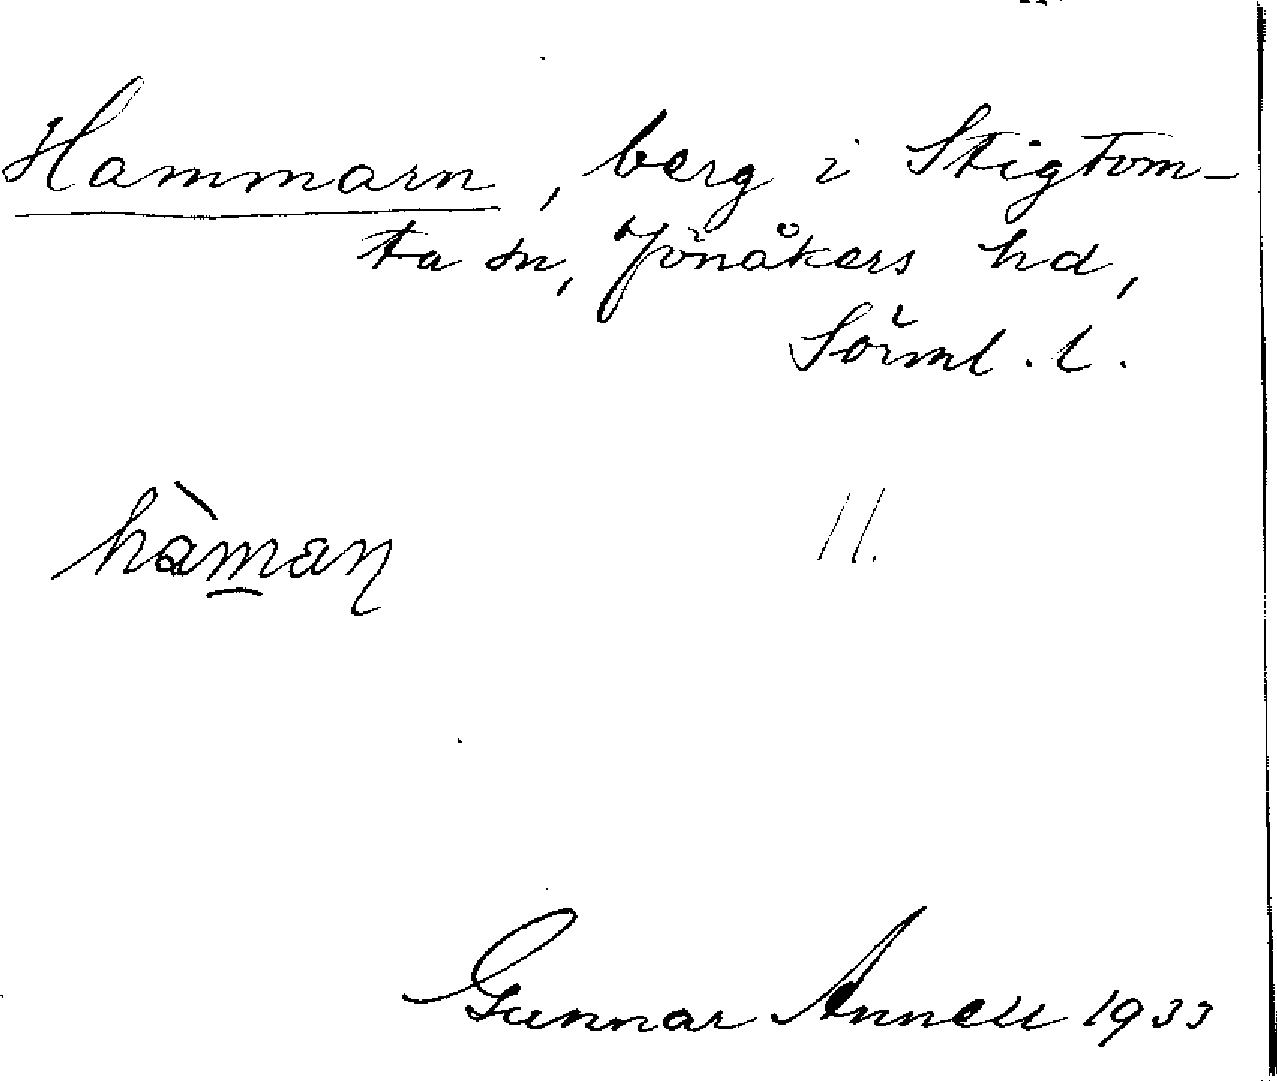 Hammarn, berg i Stigtom-
ta sn, Jönåkers hd,
Sörml. l.
hàman 11.
Gunnar Annell 1933